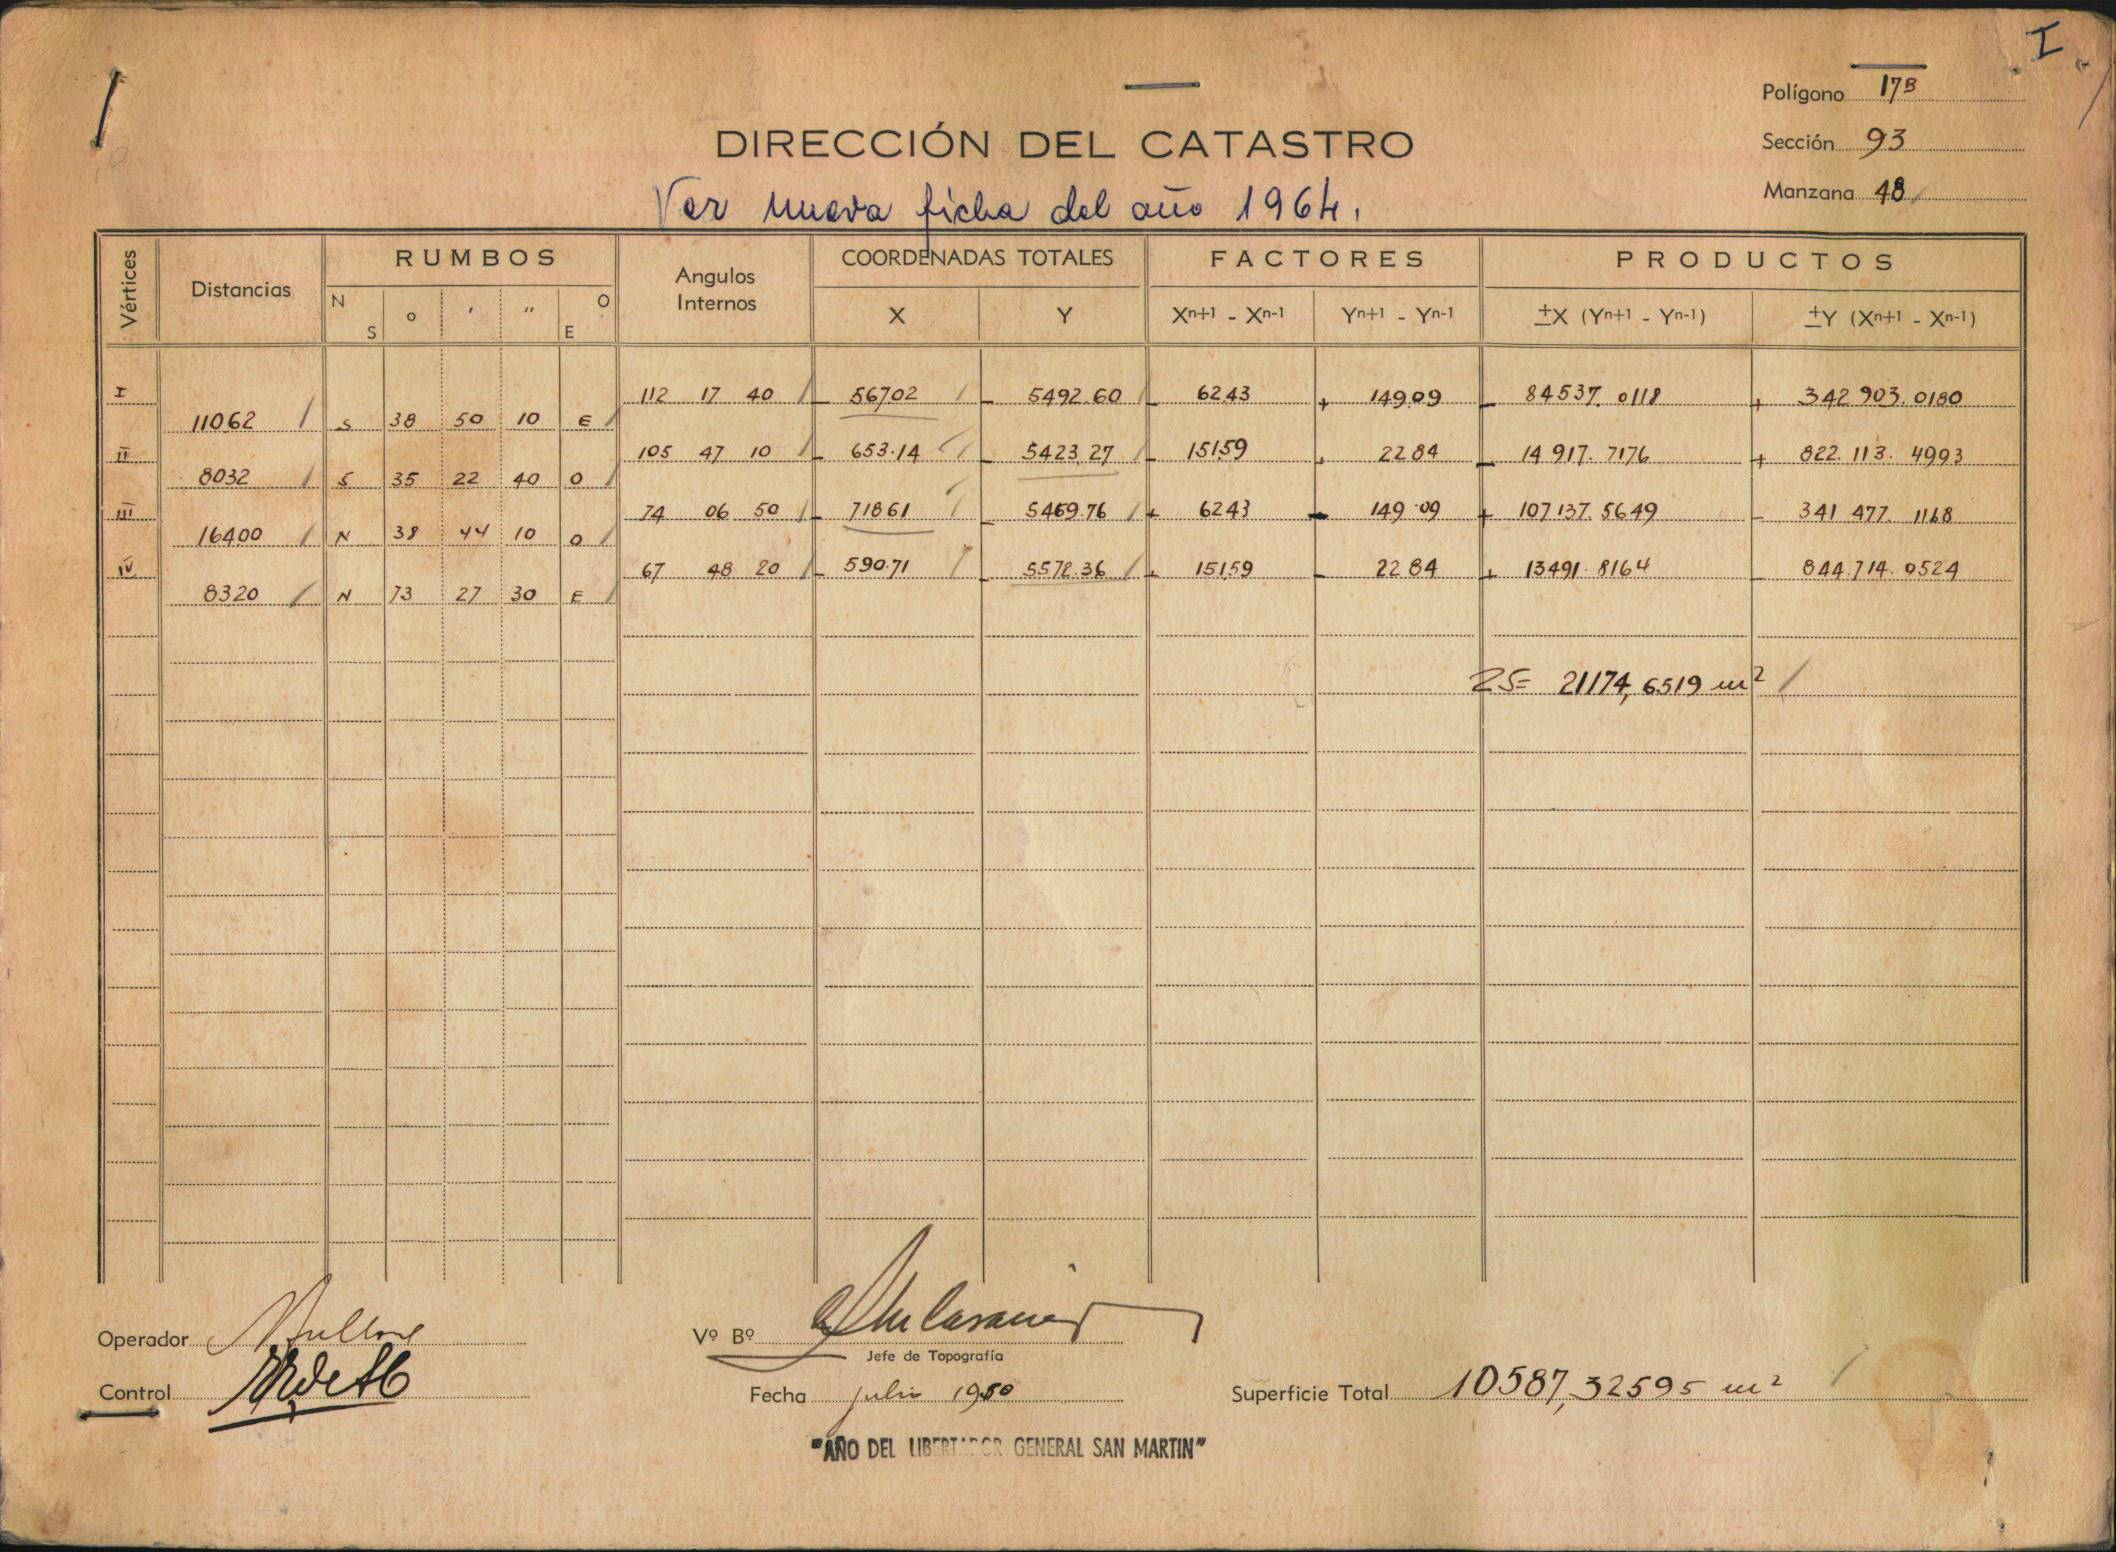 I
Polígono 17B
DIRECCIÓN DEL CATASTRO
Sección 93
Ver nueva ficha del año 1964.
Manzana 48
Vértices Distancias RUMBOS Angulos Internos COORDENADAS TOTALES FACTORES PRODUCTOS
N S o ' " O E X Y Xn+1 - Xn-1 Yn+1 - Yn-1 ±X (Yn+1 - Yn-1) ±Y (Xn+1 - Xn-1)
I 112 17 40 - 56702 - 5492.60 - 6243 + 149.09 - 84537.0118 + 342 903.0180
11062 S 38 50 10 E
II 105 47 10 - 653.14 - 5423,27 - 15159 + 2284 - 14 917.7176 + 822.113.4993
8032 S 35 22 40 O
III 74 06 50 - 71861 - 5469.76 + 6243 - 149.09 + 107 137.5649 - 341 477.1168
16400 N 38 44 10 O
IV 67 48 20 - 590.71 - 5572.36 + 15159 - 2284 + 13491.8164 - 844.714.0524
8320 N 73 27 30 E
2S= 21174,6519 m²
Operador
Vº Bº
Jefe de Topografía
Control
Fecha julio 1950
Superficie Total 10587,32595 m²
"AÑO DEL LIBERTADOR GENERAL SAN MARTIN"